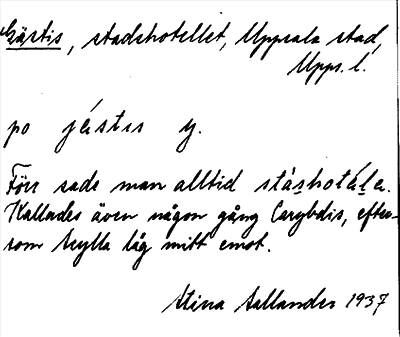 Gästis, stadshotellet, Uppsala stad,
Upps. l.
po jéstɩs y.
Förr sade man alltid stáshotäla.
Kallades även någon gång Carybdis, efter-
som Scylla låg mitt emot.
Stina Sallander 1937